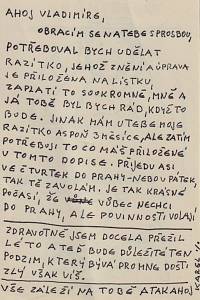 AHOJ VLADIMÍRE,
OBRACÍM SE NA TEBE S PROSBOU,
POTŘEBOVAL BYCH UDĚLAT
RAZÍTKO, JEHOŽ ZNĚNÍ A ÚPRAVA
JE PŘILOŽENA NA LÍSTKU.
ZAPLATÍ TO SOUKROMNĚ, MNĚ A
JÁ TOBĚ BYL BYCH RÁD, KDYŽ TO
BUDE. JINAK MÁM U TEBE MOJE
RAZÍTKO ASPOŇ 3 MĚSÍCE, ALE ZATÍM
POTŘEBUJI TO CO MÁŠ PŘILOŽENÉ
V TOMTO DOPISE. PŘIJEDU ASI
VE ČTVRTEK DO PRAHY - NEBO V PÁTEK,
TAK TĚ ZAVOLÁM. JE TAK KRÁSNÉ
POČASÍ, ŽE VŮBEC NECHCI
DO PRAHY, ALE POVINNOSTI VOLAJÍ
ZDRAVOTNĚ JSEM DOCELA PŘEŽIL
LÉTO A TEĎ BUDE DŮLEŽITÉ TEN
PODZIM, KTERÝ BÝVÁ PRO MNE DOSTI
ZLÝ VŠAK VÍŠ.
VŠE ZÁLEŽÍ NA TOBĚ A TAK AHOJ
KAREL